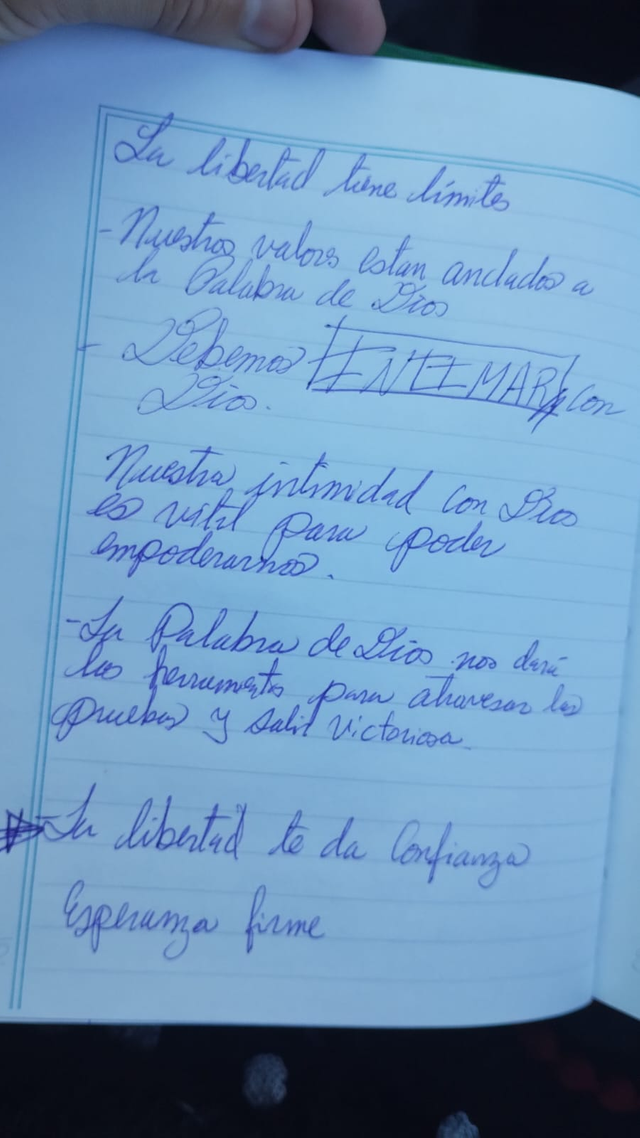 La libertad tiene límites
- Nuestros valores estan anclados a
la Palabra de Dios
- Debemos INTIMAR con
Dios.
Nuestra intimidad con Dios
es vital para poder
empoderarnos.
- La Palabra de Dios nos dará
las herramientas para atravesar las
pruebas y salir victoriosa
- La libertad te da Confianza
Esperanza firme